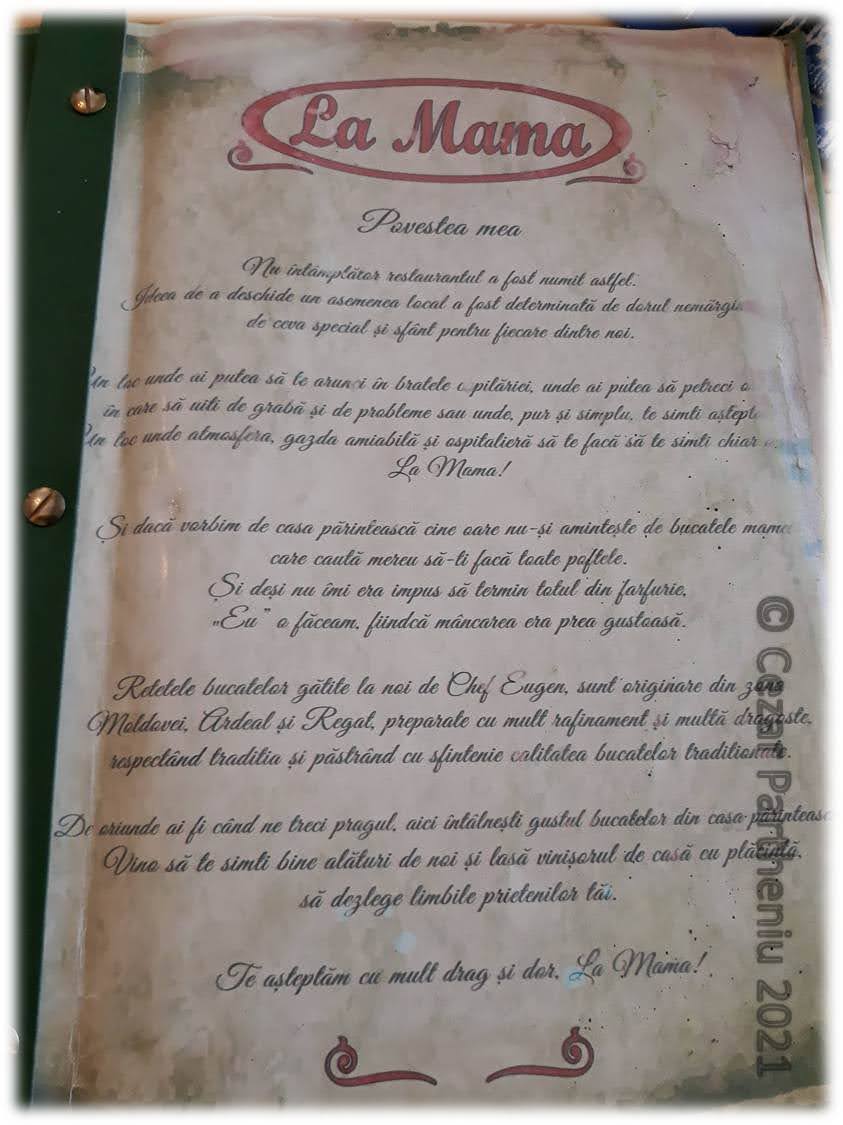 La Mama
Povestea mea
Nu întâmplător restaurantul a fost numit astfel.
Ideea de a deschide un asemenea local a fost determinată de dorul
de ceva special și sfânt pentru fiecare dintre noi.
Un loc unde ai putea să te arunci în bratele copilăriei, unde ai putea să petreci o
în care să uiti de grabă și de probleme sau unde, pur și simplu, te simti
Un loc unde atmosfera, gazda amiabilă și ospitalieră să te facă să te simti chiar
La Mama!
Și dacă vorbim de casa părintească cine oare nu-și amintește de bucatele
care caută mereu să-ti facă toate poftele.
Și deși nu îmi era impus să termin totul din farfurie,
„Eu” o făceam, fiindcă mâncarea era prea gustoasă.
Retetele bucatelor gătite la noi de Chef Eugen, sunt originare din zona
Moldovei, Ardeal și Regat, preparate cu mult rafinament și multă dragoste,
respectând traditia și păstrând cu sfintenie calitatea bucatelor traditionale.
De oriunde ai fi când ne treci pragul, aici întâlnești gustul bucatelor din casa
Vino să te simti bine alături de noi și lasă vinișorul de casă cu plăcintă,
să dezlege limbile prietenilor tăi.
Te așteptăm cu mult drag și dor, La Mama!
© Cezar Partheniu 2021